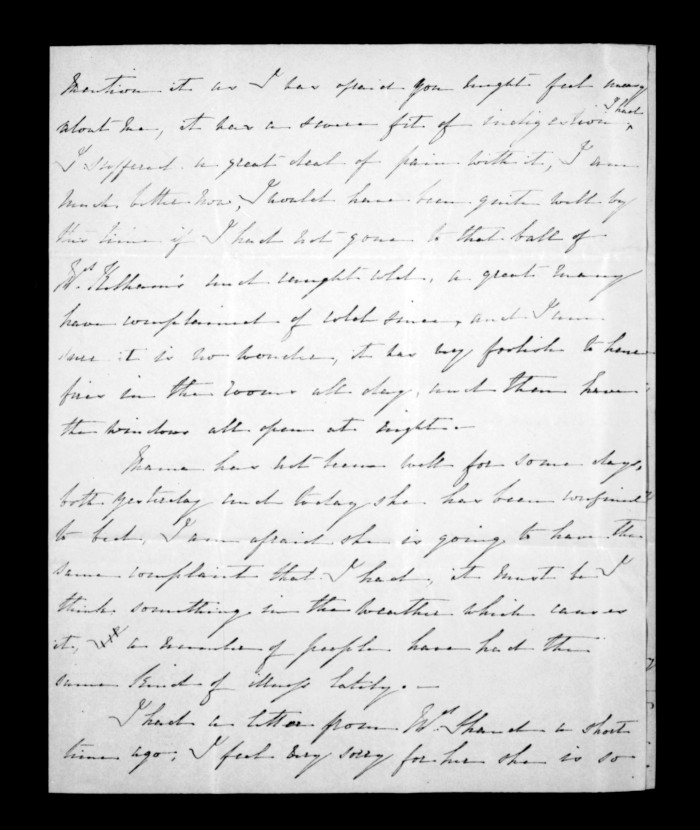 mention it as I was afraid you might feel uneasy
about me, it was a severe fit of indigestion I had,
I suffered a great deal of pain with it, I am
much better now, I would have been quite well by
this time if I had not gone to that ball of
Mrs. Kelham's and caught cold, a great many
have complained of cold since, and I am
sure it is no wonder, it was very foolish to have
fires in the rooms all day, and then have
the windows all open at night.-
Mama has not been well for some days,
both yesterday and today she has been confined
to bed, I am afraid she is going to have the
same complaint that I had, it must be I
think something in the weather which causes
it, a number of people have had the
same kind of illness lately.-
I had a letter from Mrs. a short
time ago, I feel very sorry for her she is so